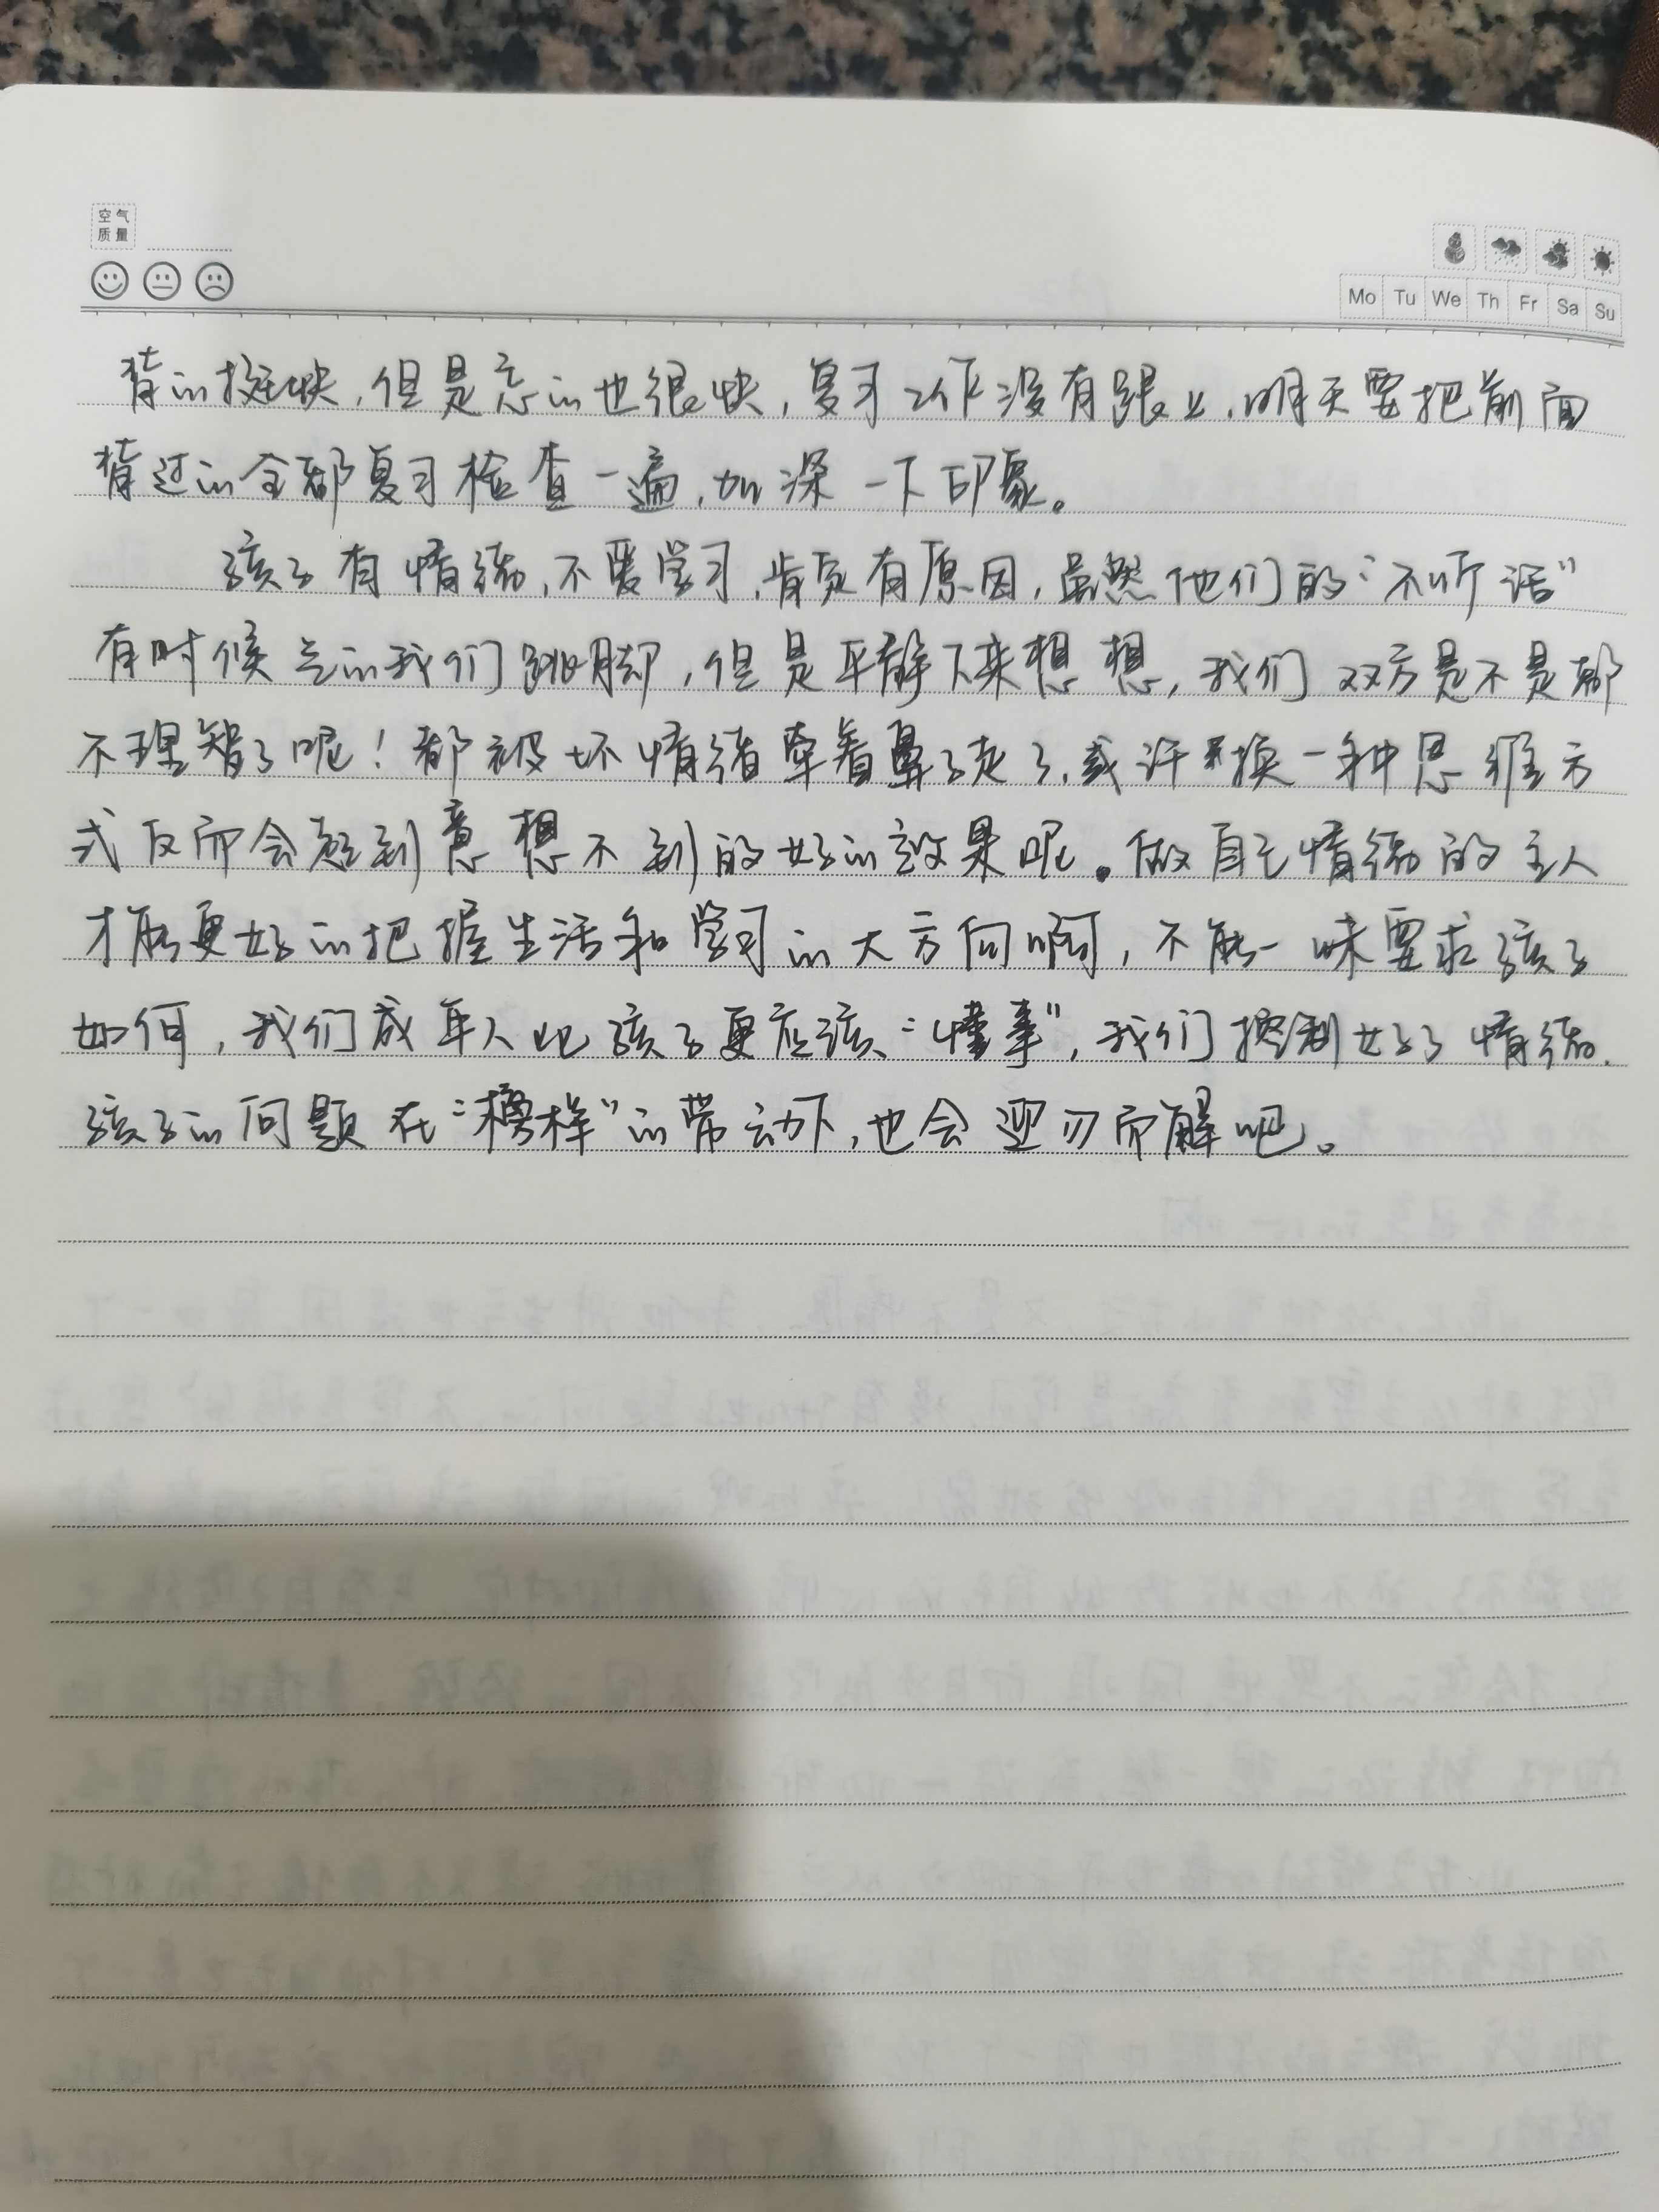 空气
质量
Mo Tu We Th Fr Sa Su
背的挺快,但是忘的也很快,复习工作没有跟上,明天要把前面
背过的全部复习检查一遍,加深一下印象。
孩子有情绪,不爱学习,肯定有原因,虽然他们的“不听话”
有时候气的我们跳脚,但是平静下来想想,我们双方是不是都
不理智了呢!都被坏情绪牵着鼻子走了,或许换一种思维方
式反而会起到意想不到的好的效果呢。做自己情绪的主人
才能更好的把握生活和学习的大方向啊,不能一味要求孩子
如何,我们成年人比孩子更应该“懂事”,我们控制好了情绪,
孩子的问题在“榜样”的带动下,也会迎刃而解吧。